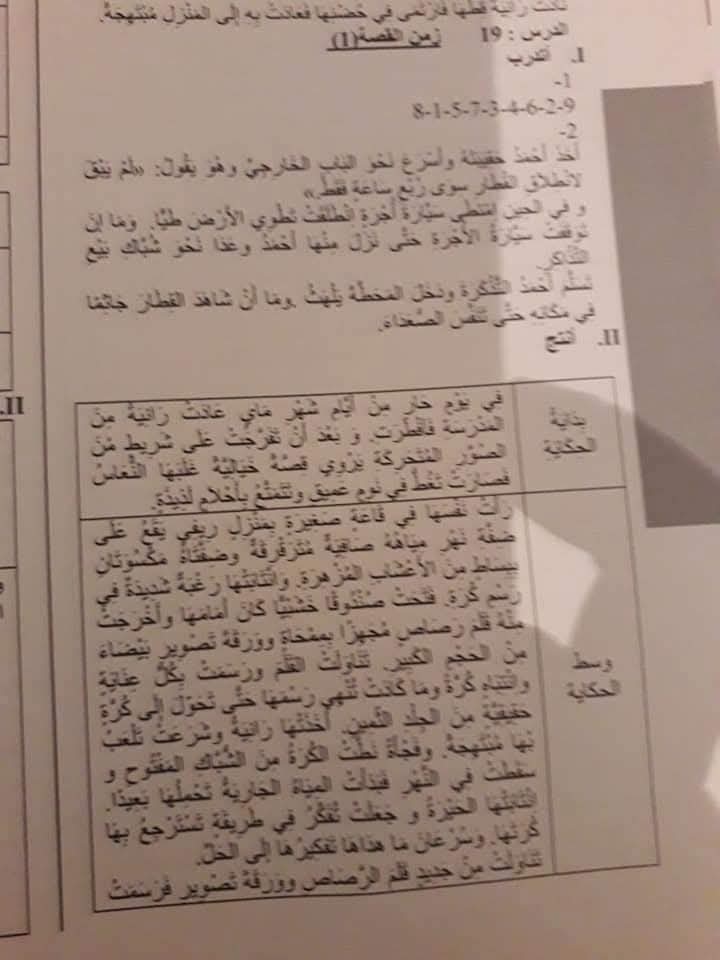 رانية قطها فارتمى في حضنها فعادت به إلى المنزل مبتهجة.
الدرس : 19 زمن القصة(1)
I. أتدرب
1-
8-1-5-7-3-4-6-2-9
2-
أخذ أحمد حقيبته وأسرع نحو الباب الخارجي وهو يقول: «لم يبق
لانطلاق القطار سوى ربع ساعة فقط.»
و في الحين امتطى سيارة أجرة انطلقت تطوي الأرض طيا. وما إن
توقفت سيارة الأجرة حتى نزل منها أحمد وعدا نحو شباك بيع
التذاكر.
تسلم أحمد التذكرة ودخل المحطة يلهث .وما أن شاهد القطار جاثما
في مكانه حتى تنفس الصعداء.
II. أنتج
بداية
الحكاية
في يوم حار من أيام شهر ماي عادت رانية من
المدرسة فأفطرت. و بعد أن تفرجت على شريط من
الصور المتحركة يروي قصة خيالية غلبها النعاس
فصارت تغط في نوم عميق وتتمتع بأحلام لذيذة.
وسط
الحكاية
رأت نفسها في قاعة صغيرة بمنزل ريفي يقع على
ضفة نهر مياهه صافية مترقرقة وضفتاه مكسوتان
ببساط من الأعشاب المزهرة. وانتابتها رغبة شديدة في
رسم كرة. فتحت صندوقا خشبيا كان أمامها وأخرجت
منه قلم رصاص مجهزا بممحاة وورقة تصوير بيضاء
من الحجم الكبير. تناولت القلم ورسمت بكل عناية
وانتباه كرة وما كانت تنهي رسمها حتى تحول إلى كرة
حقيقية من الجلد الثمين. أخذتها رانية وشرعت تلعب
بها مبتهجة. وفجأة نطت الكرة من الشباك المفتوح و
سقطت في النهر فبدأت المياه الجارية تحملها بعيدا.
انتابتها الحيرة و جعلت تفكر في طريقة تسترجع بها
كرتها. وسرعان ما هداها تفكيرها إلى الحل.
تناولت من جديد قلم الرصاص وورقة تصوير فرسمت
II.